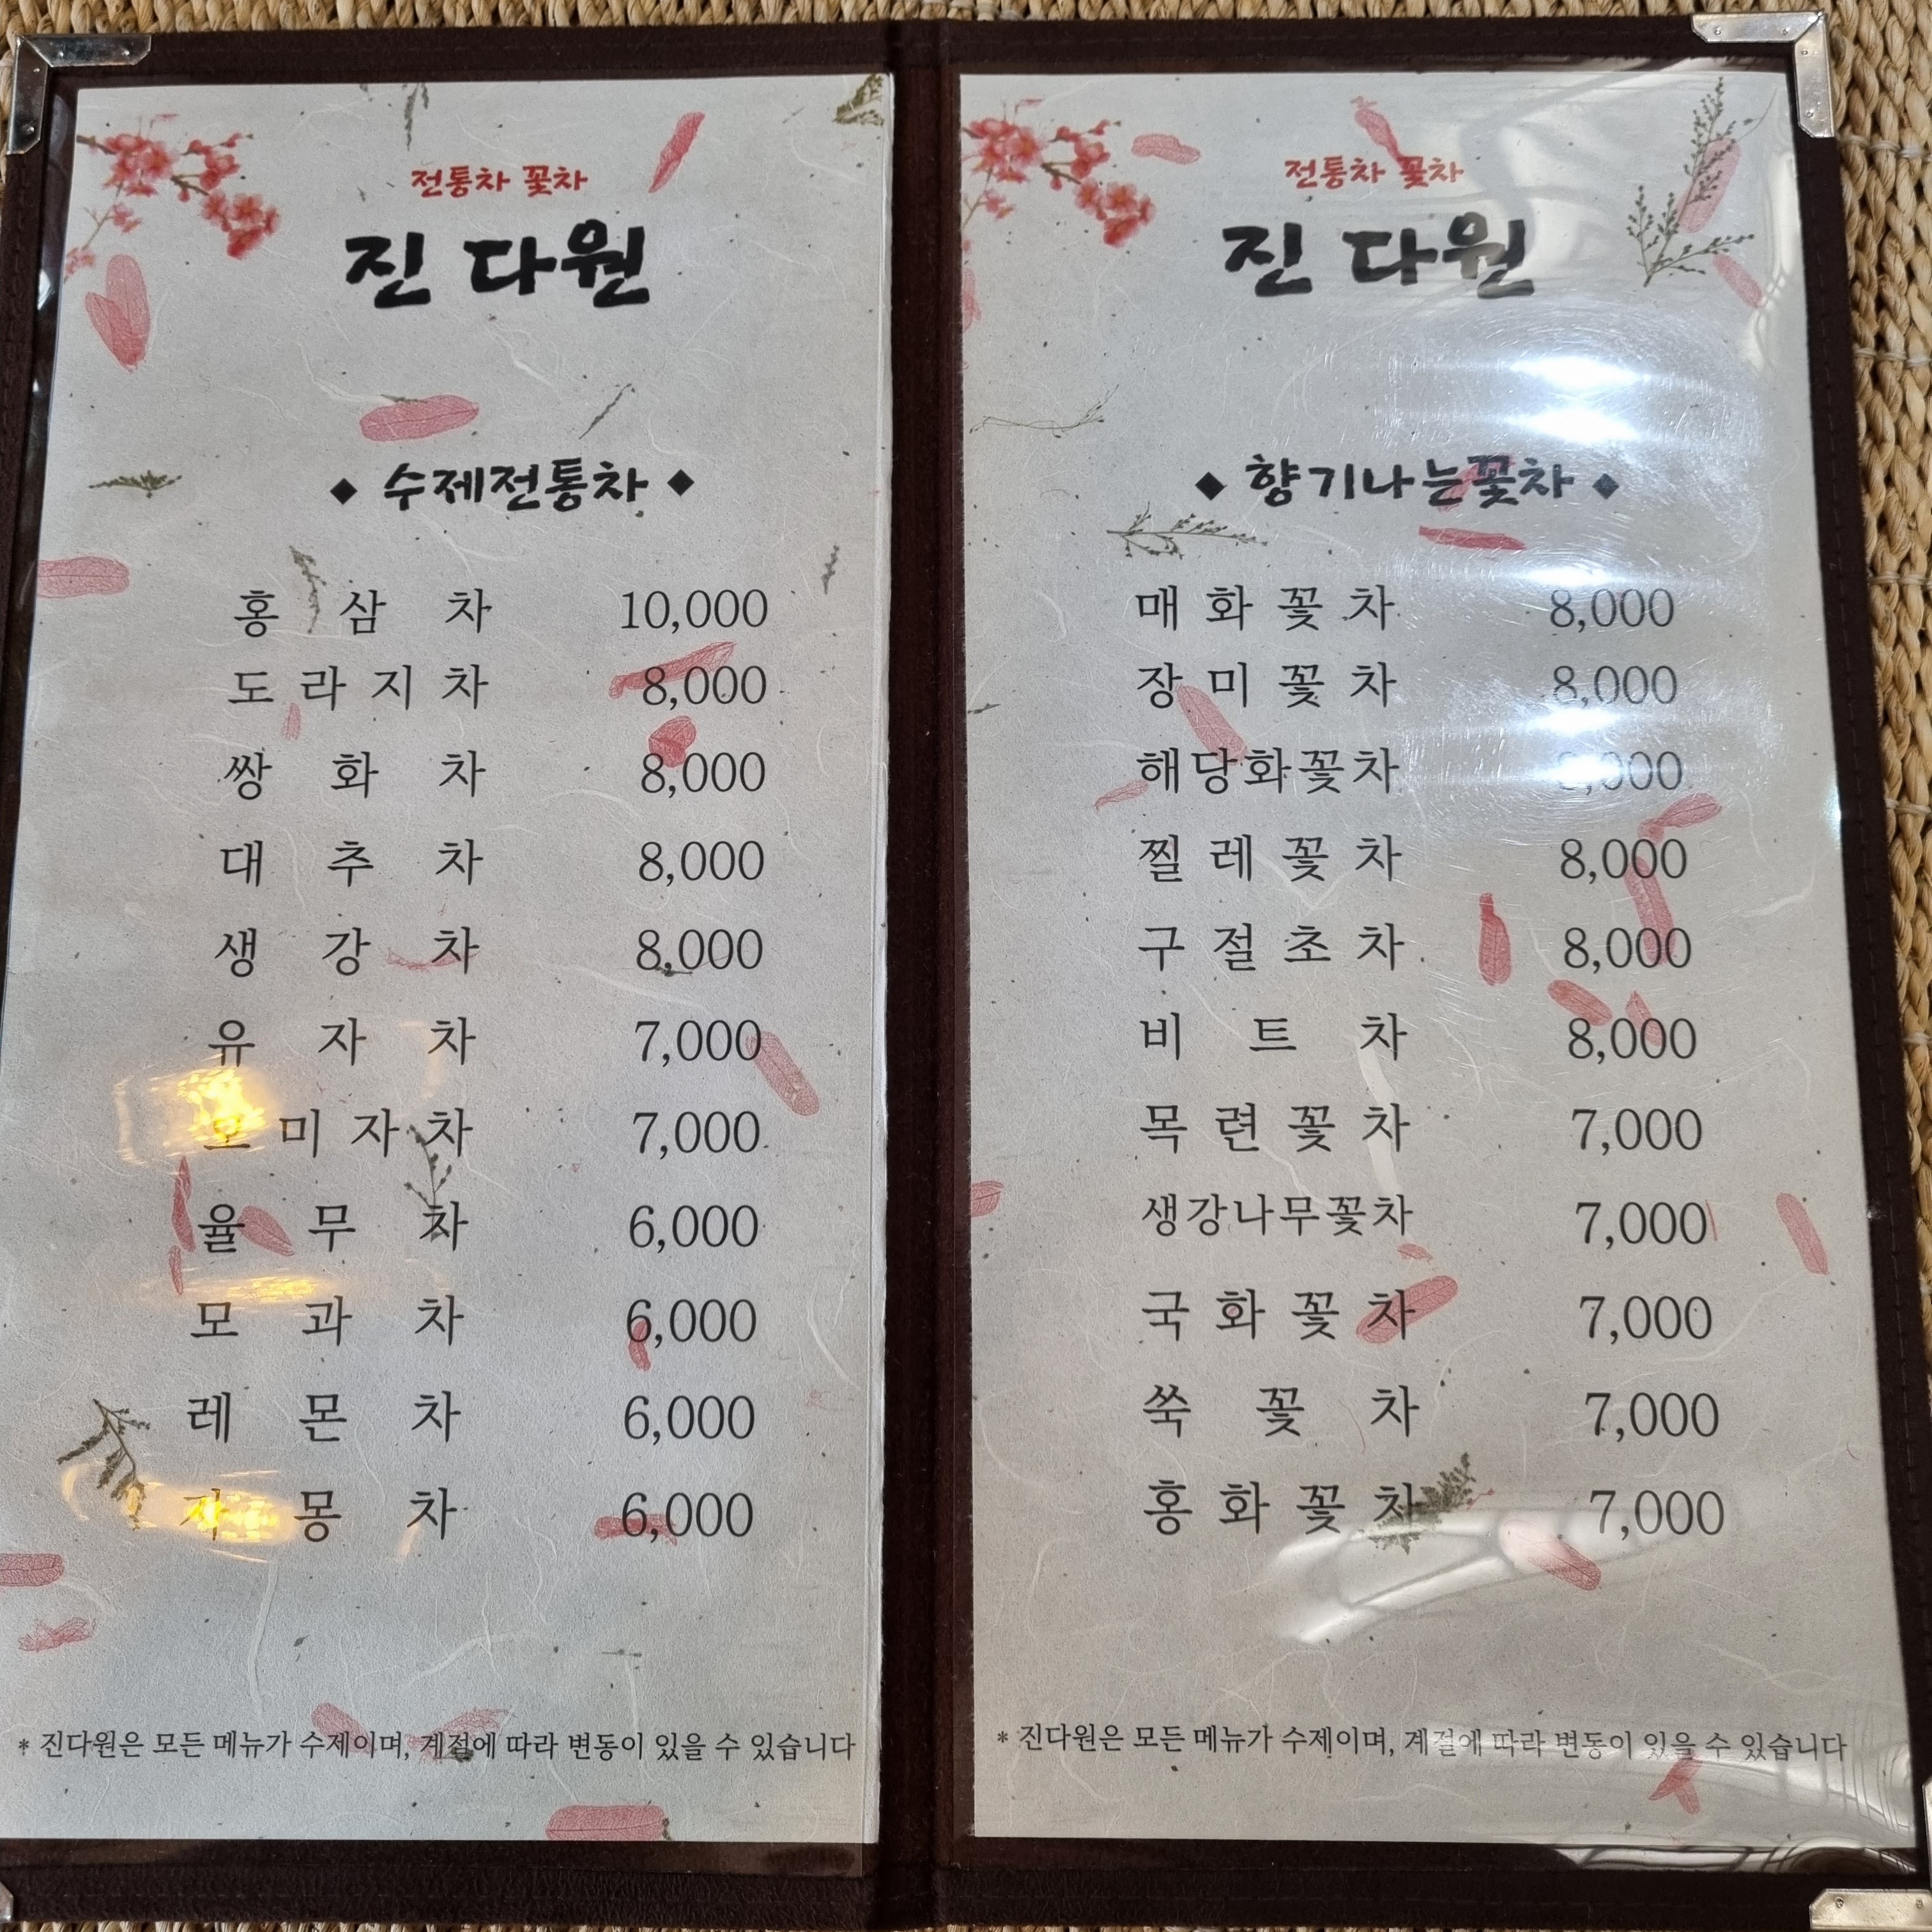 전통차 꽃차
진 다원
◆ 수제전통차 ◆
홍 삼 차 10,000
도 라 지 차 8,000
쌍 화 차 8,000
대 추 차 8,000
생 강 차 8,000
유 자 차 7,000
오 미 자 차 7,000
율 무 차 6,000
모 과 차 6,000
레 몬 차 6,000
자 몽 차 6,000
* 진다원은 모든 메뉴가 수제이며, 계절에 따라 변동이 있을 수 있습니다
전통차 꽃차
진 다원
◆ 향기나는꽃차 ◆
매 화 꽃 차 8,000
장 미 꽃 차 8,000
해당화꽃차 8,000
찔 레 꽃 차 8,000
구 절 초 차 8,000
비 트 차 8,000
목 련 꽃 차 7,000
생강나무꽃차 7,000
국 화 꽃 차 7,000
쑥 꽃 차 7,000
홍 화 꽃 차 7,000
* 진다원은 모든 메뉴가 수제이며, 계절에 따라 변동이 있을 수 있습니다